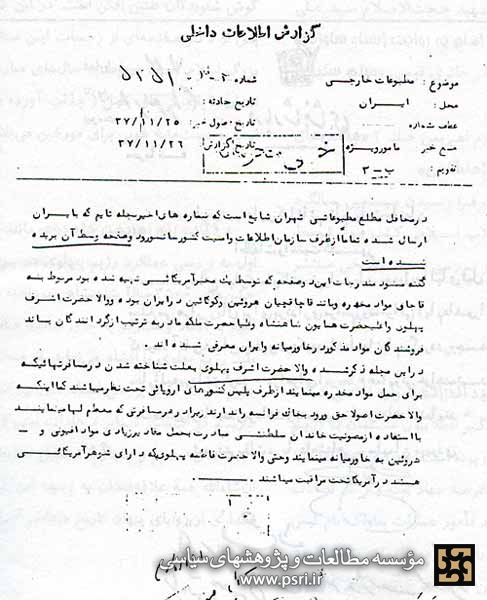 گزارش اطلاعات داخلی
موضوع : مطبوعات خارجی
محل : ایران
عطف شماره
منبع خبر : مامور ویژه
تقویم : ب-۳
شماره
تاریخ حادثه :
تاریخ وصول خبر : ۳۷/۱۱/۲۵
تاریخ گزارش : ۳۷/۱۱/۲۶
در محافل مطلع مطبوعاتی تهران شایع است که شماره های اخیر مجله تایم که بایران
ارسال شده تماما از طرف سازمان اطلاعات وامنیت کشور سانسور ود وصفحه وسط آن بریده
شده است
گفته میشود مندرجات این دو صفحه که توسط یک مخبر آمریکائی تهیه شده بود مربوط بسه
قاچاق مواد مخدره وباند قاچاقچیان هروئین وکوکائین در ایران بوده ووالا حضرت اشرف
پهلوی والیحضرت همایون شاهنشاه وعلیا حضرت ملکه مادر به ترتیب از گردانندگان باند
فروشندگان مواد مذکور در خاورمیانه وایران معرفی شده اند .
در این مجله ذکر شده والا حضرت اشرف پهلوی بعلت شناخته شدن در مسافرتهائیکه
برای حمل مواد مخدره مینمایند از طرف پلیس کشورهای اروپائی تحت نظر میباشند کما اینکه
والا حضرت اصولا حق ورود بخاک فرانسه را ندارند زیرا در مسافرتی که معظم لها مینمایند
با استفاده از مصونیت خاندان سلطنتی مبادرت بحمل مقادیر زیادی مواد افیونی و
هروئین به خاورمیانه مینمایند وحتی والا حضرت فاطمه پهلوی که دارای شوهر آمریکائی
هستند در آمریکا تحت مراقبت میباشند .
مؤسسه مطالعات و پژوهشهای سیاسی
www.psri.ir